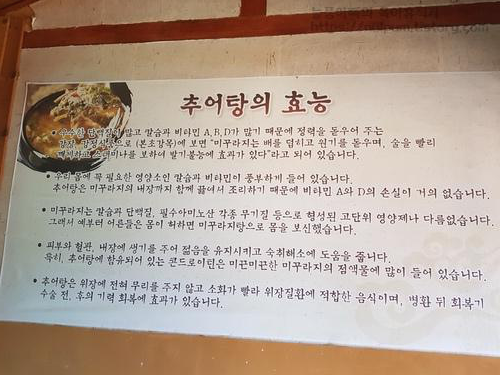 추어탕의 효능
• 우수한 단백질이 많고 칼슘과 비타민 A, B, D가 많기 때문에 정력을 돋우어 주는
강장, 강정식품으로 (본초강목)에 보면 "미꾸라지는 배를 덥히고 원기를 돋우며, 술을 빨리
깨게하고 스테미너를 보하여 발기불능에 효과가 있다"라고 되어 있습니다.
• 우리 몸에 꼭 필요한 영양소인 칼슘과 비타민이 풍부하게 들어 있습니다.
추어탕은 미꾸라지의 내장까지 함께 끓여서 조리하기 때문에 비타민 A와 D의 손실이 거의 없습니다.
• 미꾸라지는 칼슘과 단백질, 필수아미노산 각종 무기질 등으로 형성된 고단위 영양제나 다름없습니다.
그래서 예부터 어른들은 몸이 허하면 미꾸라지탕으로 몸을 보신했습니다.
• 피부와 혈관, 내장에 생기를 주어 젊음을 유지시키고 숙취해소에 도움을 줍니다.
특히, 추어탕에 함유되어 있는 콘드로이틴은 미끈미끈한 미꾸라지의 점액물에 많이 들어 있습니다.
• 추어탕은 위장에 전혀 무리를 주지 않고 소화가 빨라 위장질환에 적합한 음식이며, 병환 뒤 회복기
수술 전, 후의 기력 회복에 효과가 있습니다.